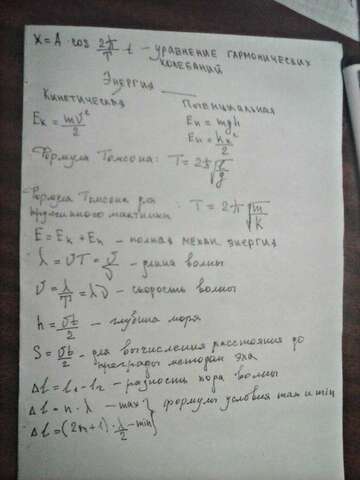 x = A · cos 2π/T t – уравнение гармонических
колебаний
Энергия
Кинетическая Потенциальная
Eк = mv²/2 Eп = mgh
Eп = kx²/2
Формула Томсона: T = 2π√(l/g)
Формула Томсона для
пружинного маятника : T = 2π√(m/k)
E = Eк + Eп – полная механ. энергия
λ = υT = υ/ν – длина волны
υ = λ/T = λν – скорость волны
h = υt/2 – глубина моря
S = υt/2 – для вычисления расстояния до
преграды методом эха
Δl = l₁ - l₂ – разность хода волны
Δl = n · λ – max } формулы условия max и min
Δl = (2n+1) · λ/2 – min}